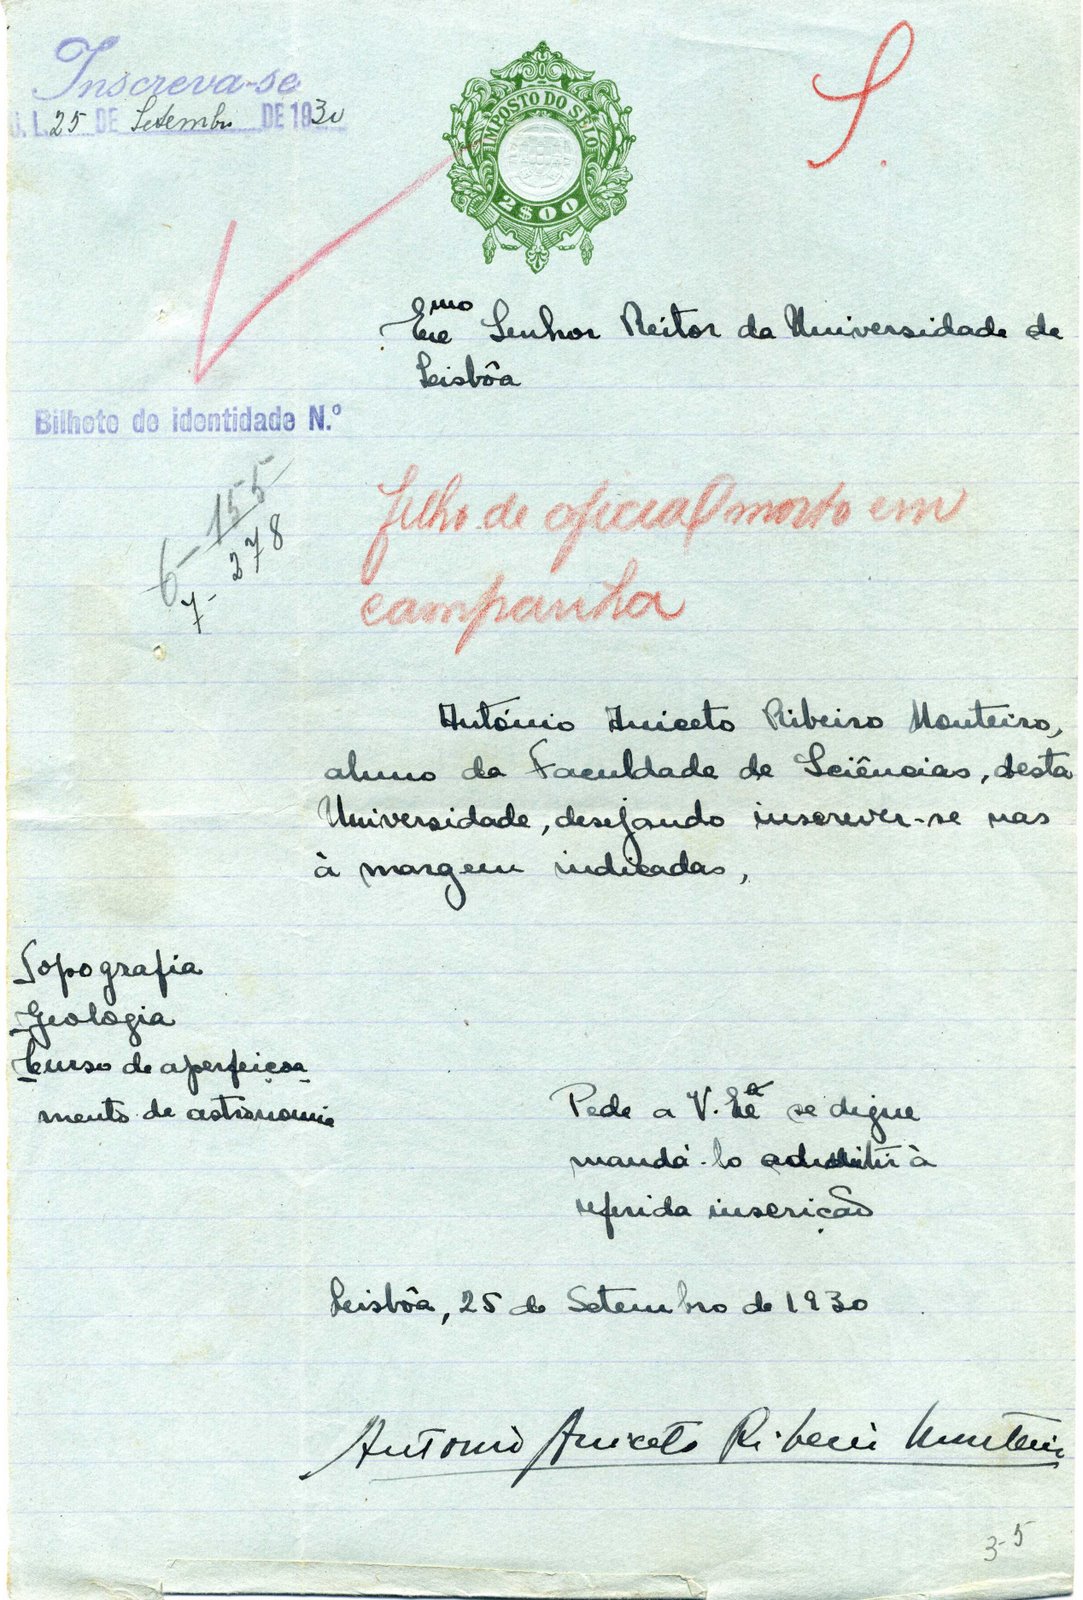 Inscreva-se
U. L. 25 DE Setembro DE 1930
IMPOSTO DO SÊLO
2$00
S.
Exmo Senhor Reitor da Universidade de
Lisbôa
Bilhete de identidade N.º
6-155
7-278
filho de oficial morto em
campanha
António Aniceto Ribeiro Monteiro,
aluno da Faculdade de Sciências, desta
Universidade, desejando inscrever-se nas
à margem indicadas,
Topografia
Geologia
Curso de aperfeiçoa-
mento de astronomia
Pede a V. Exª se digne
mandá-lo admitir à
referida inscrição
Lisbôa, 25 de Setembro de 1930
Antonio Aniceto Ribeiro Monteiro
3-5